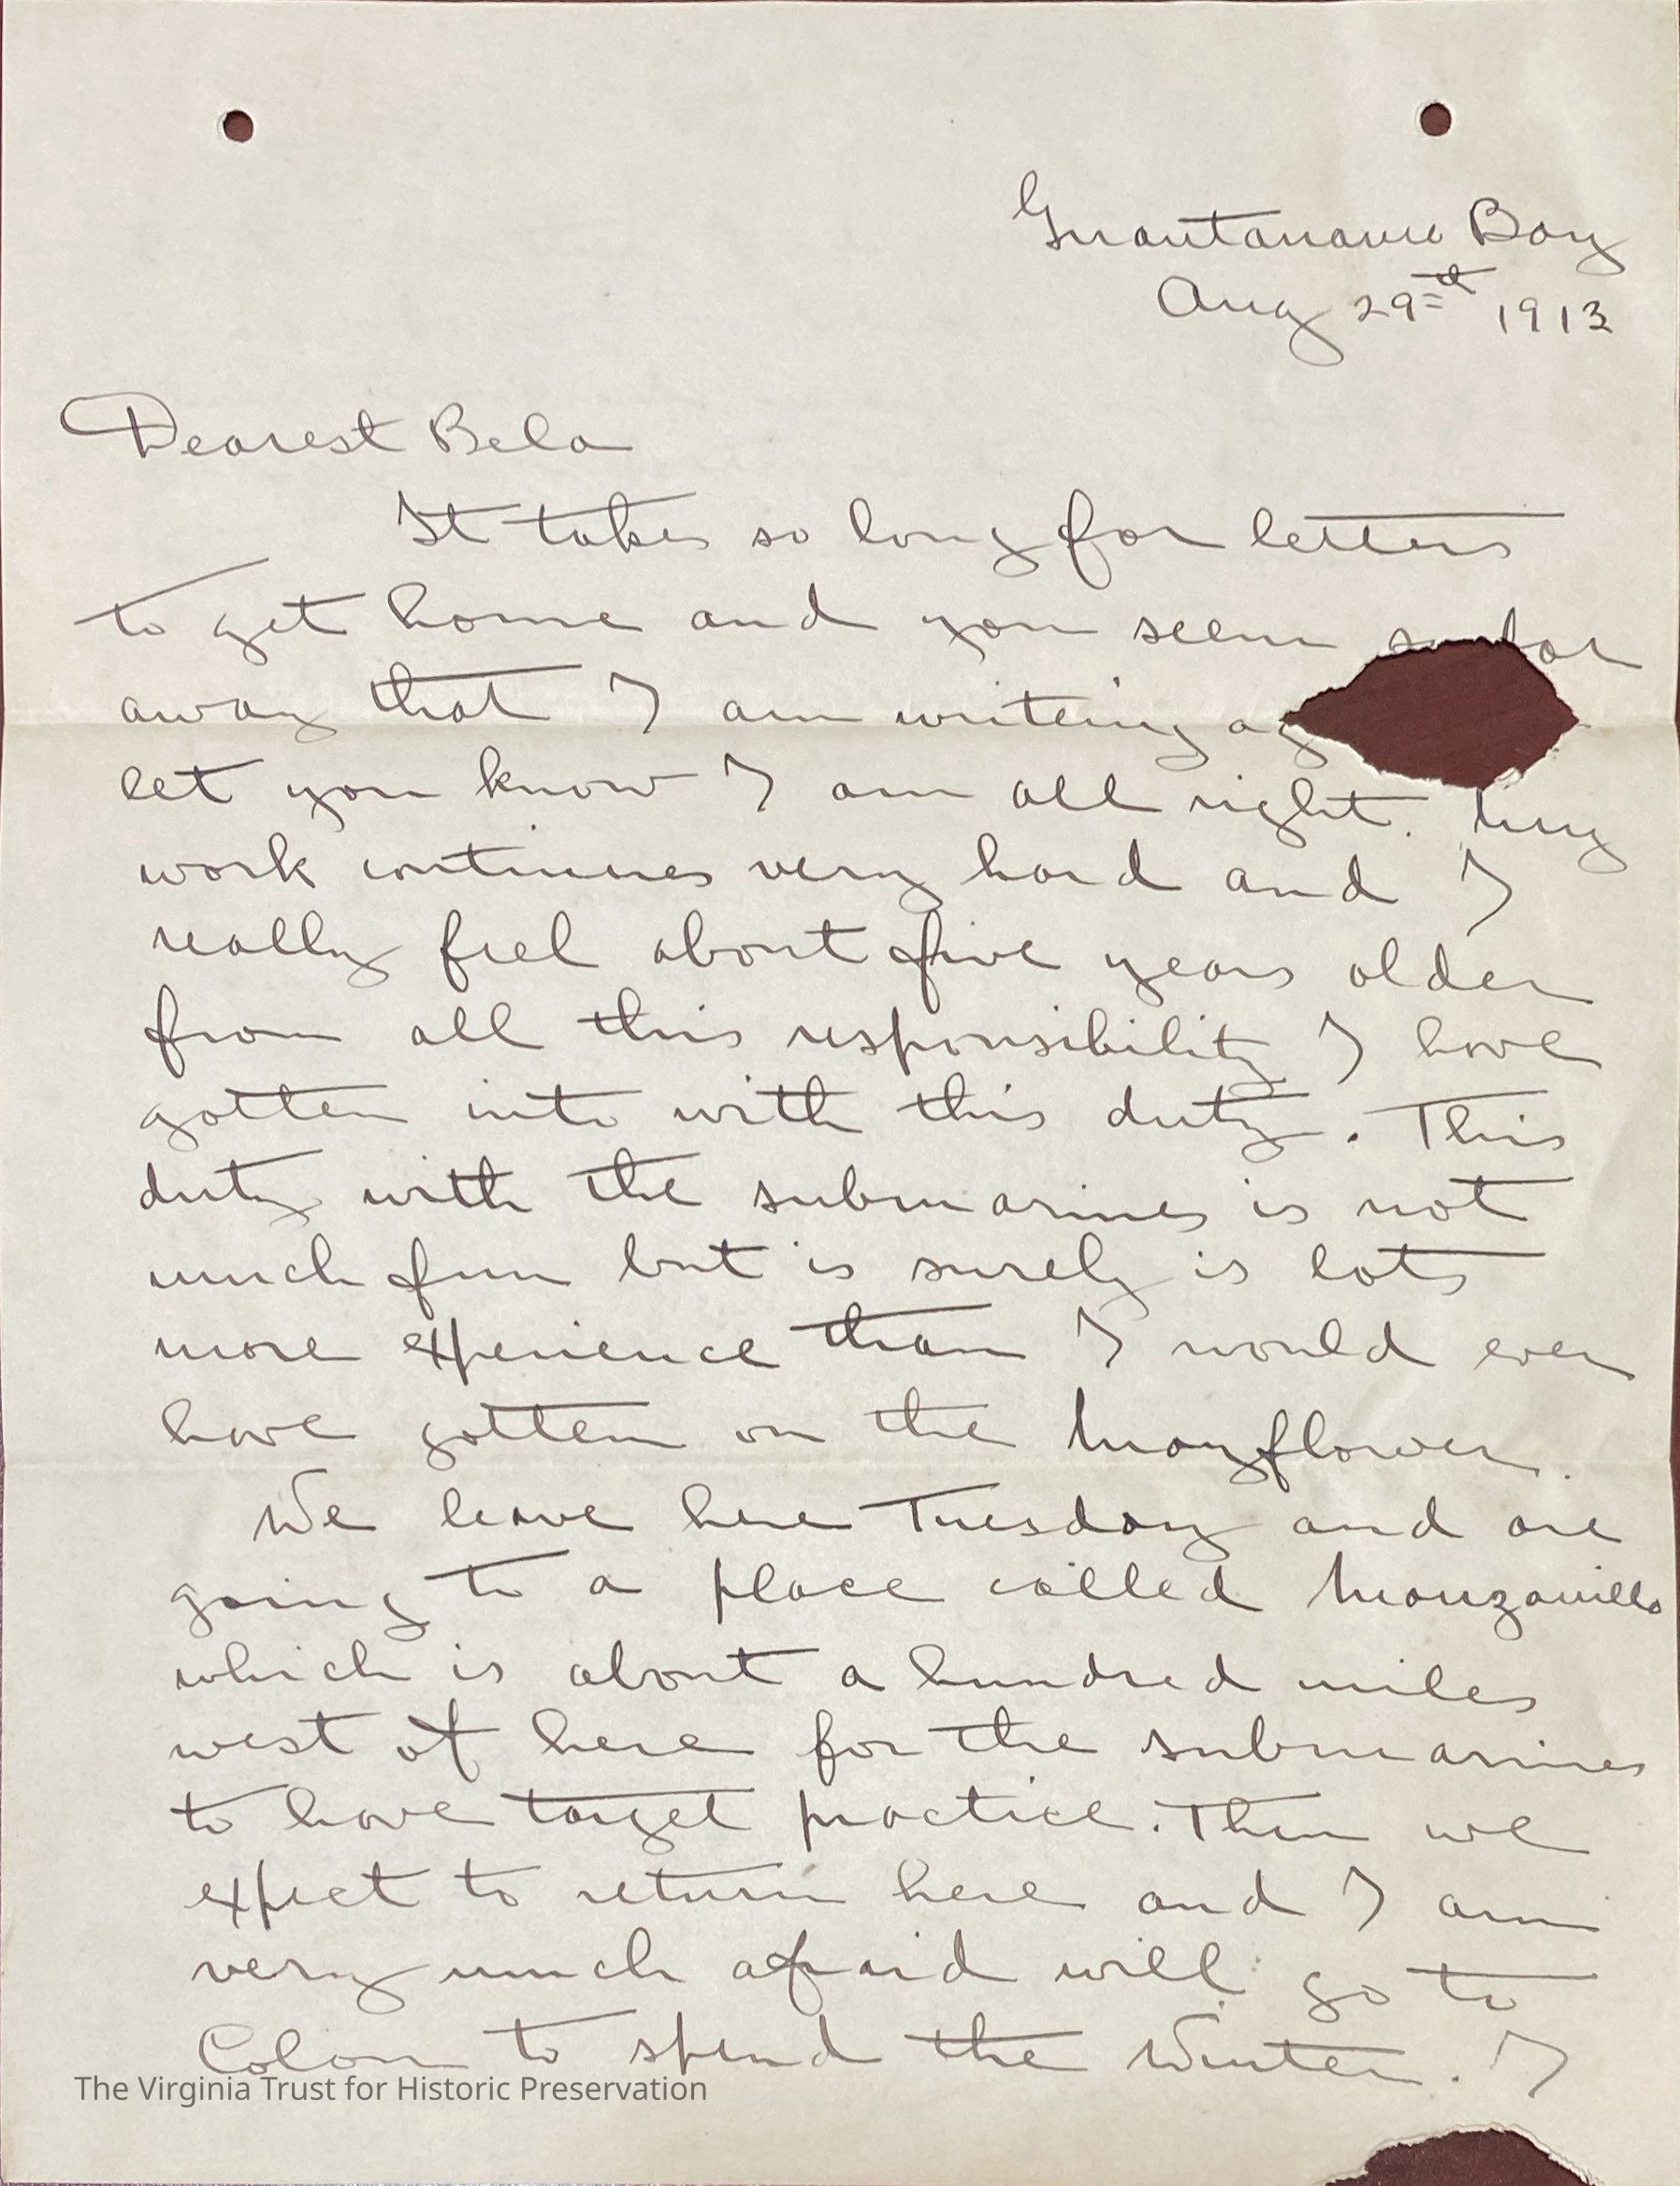 Guantanamo Bay
Aug 29th 1913
Dearest Bela
It takes so long for letters
to get home and you seem so far
away that I am writeing ag
let you know I am all right. My
work continues very hard and I
really feel about five years older
from all this responsibility I have
gotten into with this duty. This
duty with the submarines is not
much fun but is surely is lots
more experience than I would ever
have gotten on the Mayflower.
We leave here Tuesday and are
going to a place called Manzanillo
which is about a hundred miles
west of here for the submarines
to have target practice. Then we
expect to return here and I am
very much afraid will go to
Colon to spend the Winter. I
The Virginia Trust for Historic Preservation